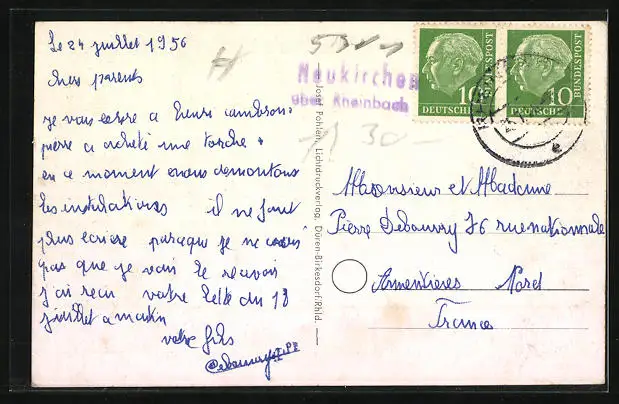 Le 24 juillet 1956
chers parents
je vous ecrire a
pierre a acheté une torche
en ce moment nous demontons
les installations il ne faut
plus ecrire parceque je ne
pas que je vais le recevoir
j'ai recu votre lettre du 18
juillet a matin
votre fils
Neukirchen
über Rheinbach
Josef Pohlen, Lichtdruckverlag, Düren-Birkesdorf/Rhld.
10
DEUTSCHE
BUNDESPOST
10
DEUTSCHE
BUNDESPOST
30-
Monsieur et Madame
Pierre Debouvry 76 rue nationale
Armentieres Nord
France